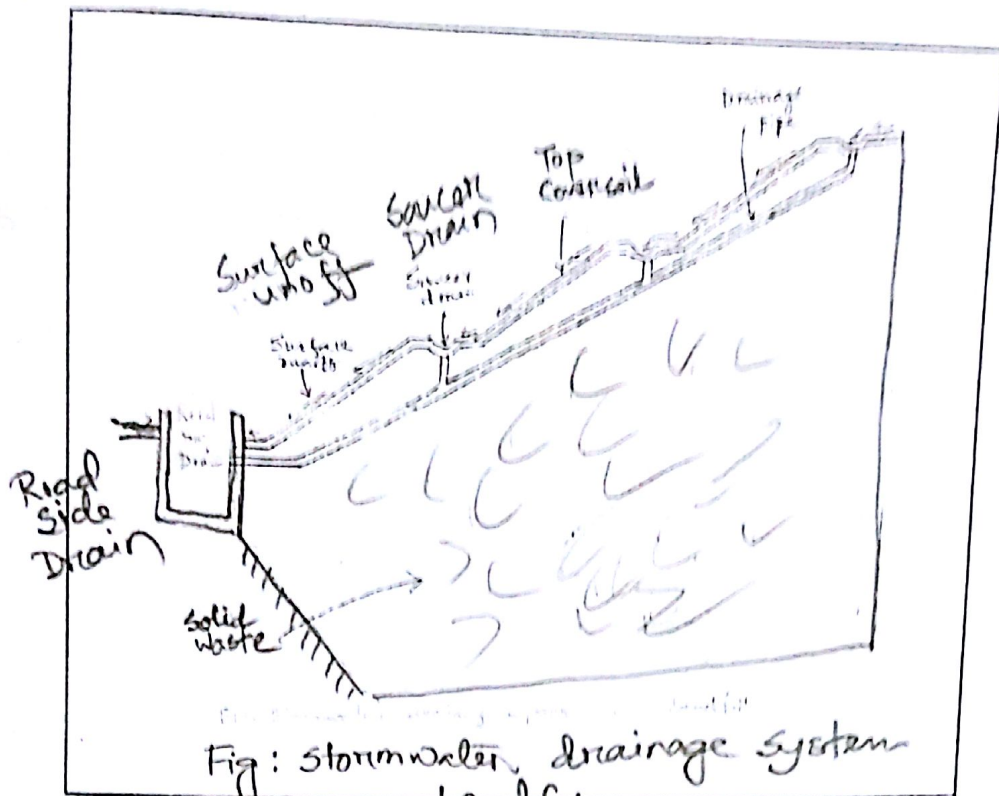 Drainage
Pipe
Top
Cover soil
Saucer
Drain
Surface
unoff
Saucer
drain
Surface
runoff
Road
Side
Drain
Road
Side
Drain
Solid
waste
Fig: Stormwater drainage system